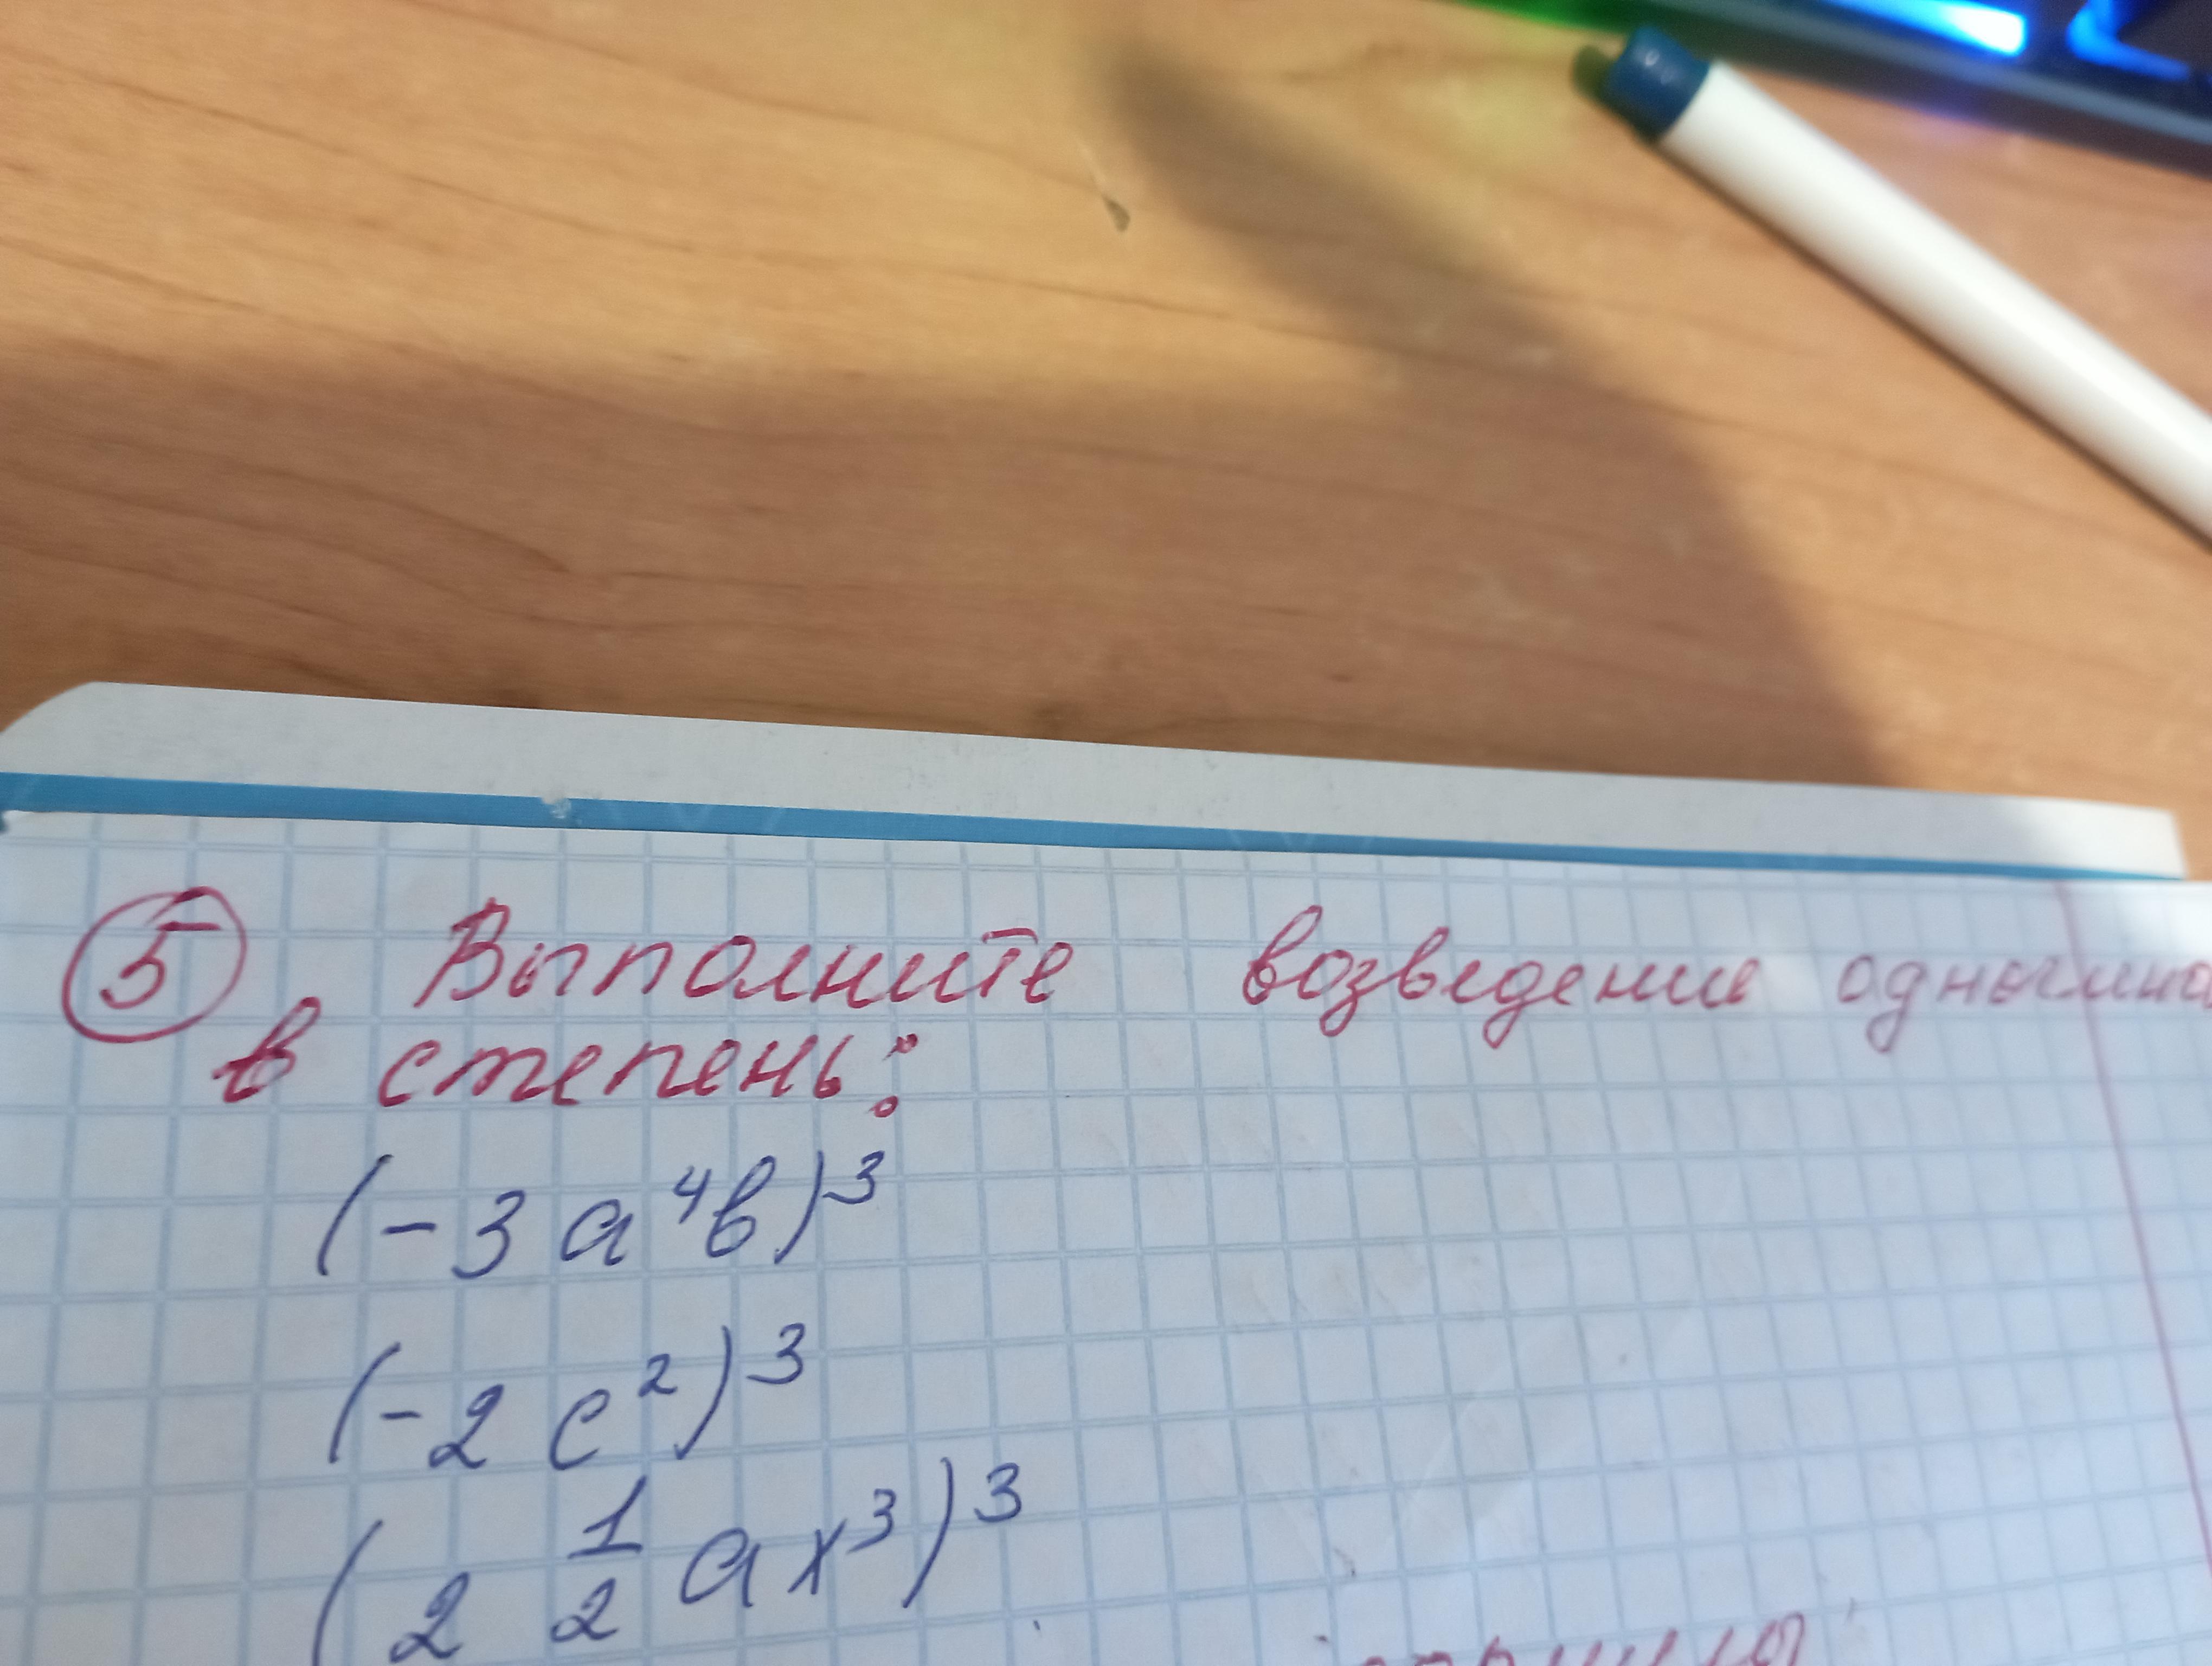 5 Выполните возведение одночлена
в степень:
(-3a⁴b)³
(-2c²)³
(2 1/2 ax³)³